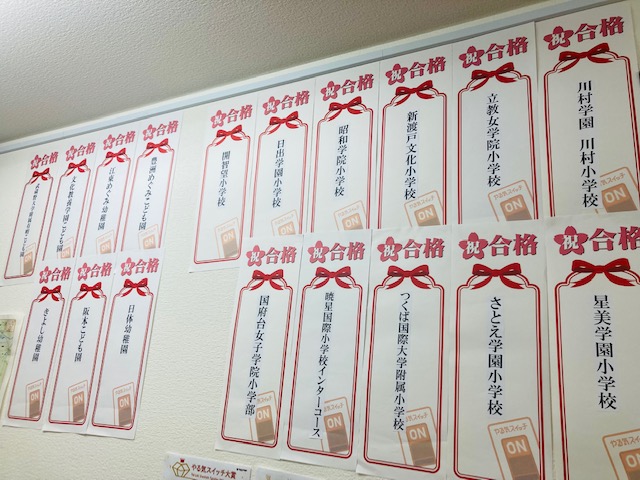 祝合格
川村学園 川村小学校
祝合格
立教女学院小学校
やる気スイッチ
ON
祝合格
新渡戸文化小学校
やる気スイッチ
ON
祝合格
昭和学院小学校
ON
祝合格
日出学園小学校
ON
祝合格
開智望小学校
ON
祝合格
豊洲めぐみこども園
ON
祝合格
江東めぐみ幼稚園
ON
祝合格
文化教養学園こども園
ON
祝合格
ON
祝合格
星美学園小学校
祝合格
さとえ学園小学校
やる気スイッチ
ON
祝合格
つくば国際大学附属小学校
やる気スイッチ
ON
祝合格
暁星国際小学校インターコース
ON
祝合格
国府台女子学院小学部
ON
祝合格
日体幼稚園
ON
祝合格
阪本こども園
ON
祝合格
きよし幼稚園
ON
やる気スイッチ大賞